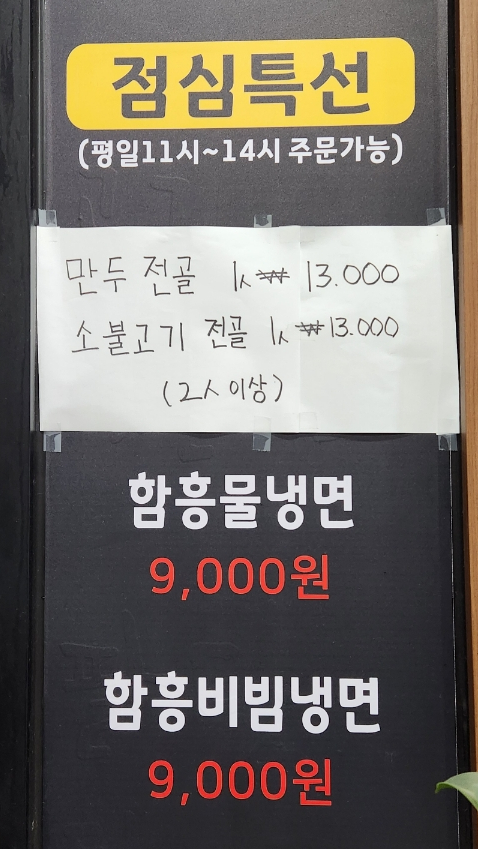 점심특선
(평일11시~14시 주문가능)
만두 전골 1人 ₩ 13.000
소불고기 전골 1人 ₩13.000
(2人 이상)
함흥물냉면
9,000원
함흥비빔냉면
9,000원